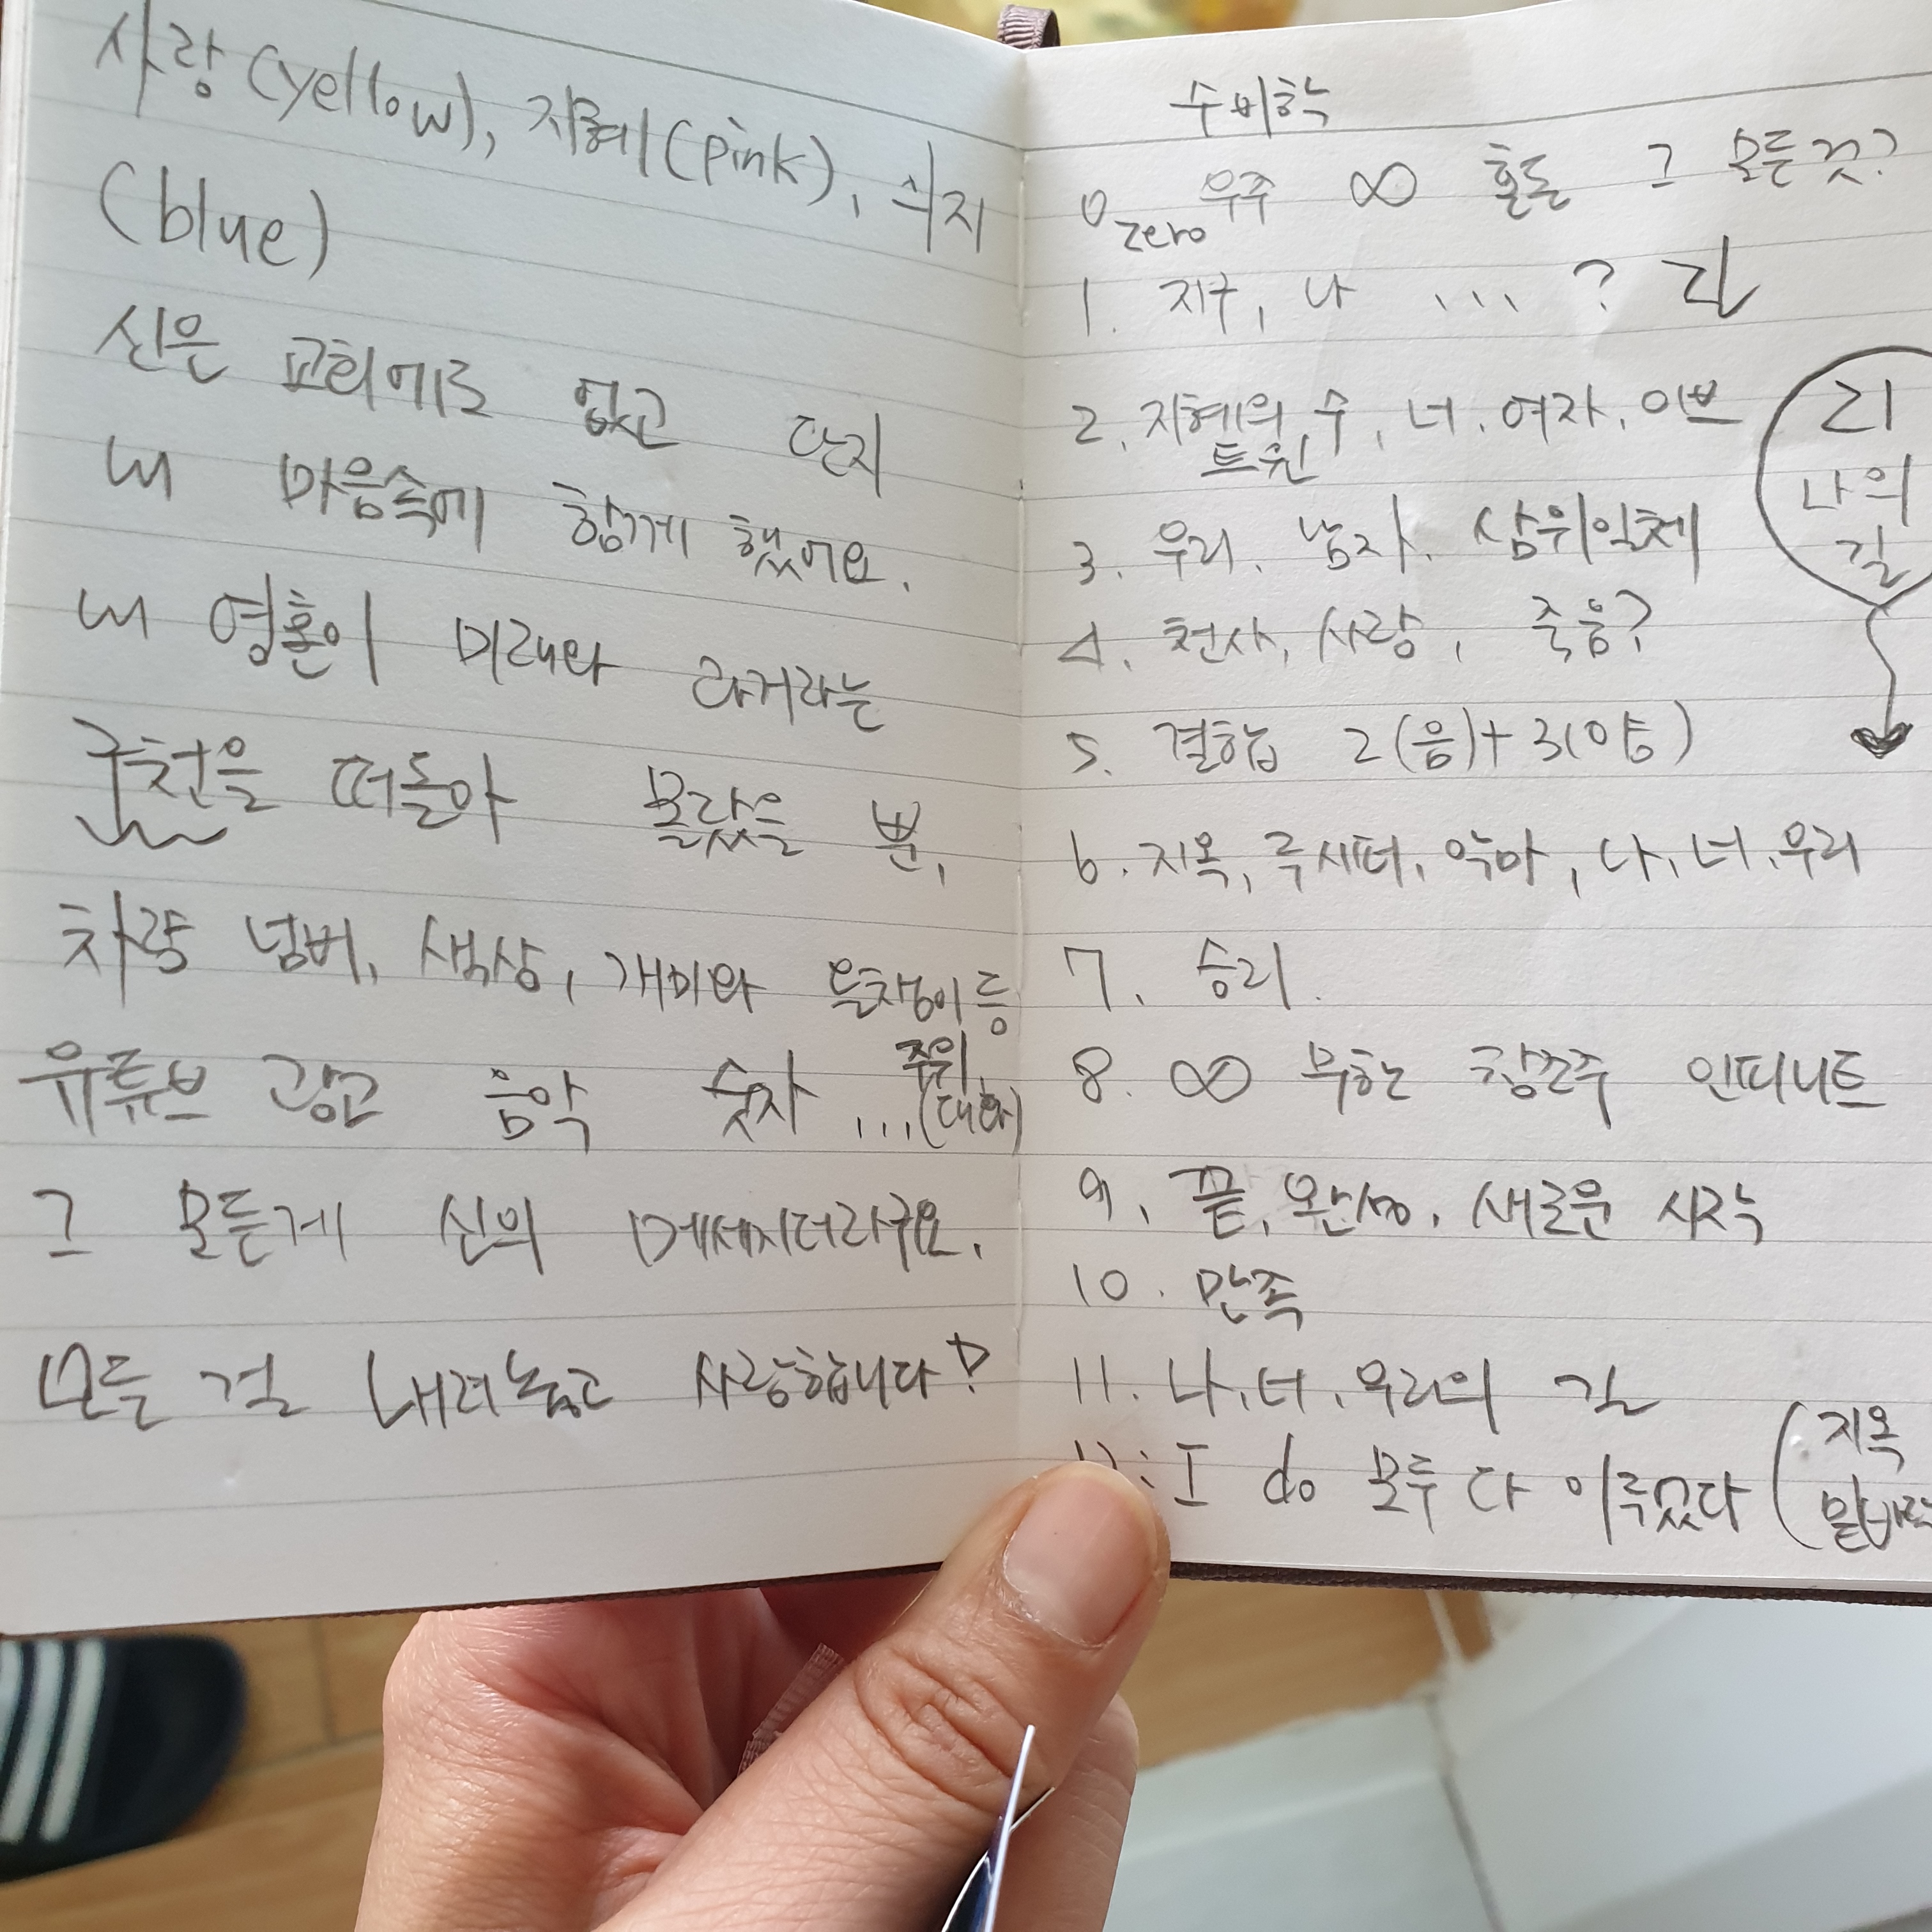 사랑(yellow), 지혜(pink), 의지
(blue)
신은 교회에도 없고 단지
내 마음속에 함께 했어요.
내 영혼이 미래와 과거라는
구천을 떠돌아 몰랐을 뿐,
차량 넘버, 색상, 개미와 달챙이 등
유튜브 광고 음악 숫자 ... 주위(대화)
그 모든게 신의 메세지더라구요.
모든 걸 내려놓고 사랑합니다!
수비학
0 zero 우주 ∞ 혼돈 그 모든것?
1. 지구, 나 ... ?
2. 지혜의 수, 너, 여자, 이브
트윈
3. 우리, 남자, 삼위일체
4. 천사, 사랑, 죽음?
5. 결합 2(음)+3(양)
6. 지옥, 루시퍼, 악마, 나, 너, 우리
7. 승리.
8. ∞ 무한 창조주 인피니트
9. 끝, 완성, 새로운 시작
10. 만족
11. 나, 너, 우리의 길
I do 모두 다 이루었다 (지옥
나의
길